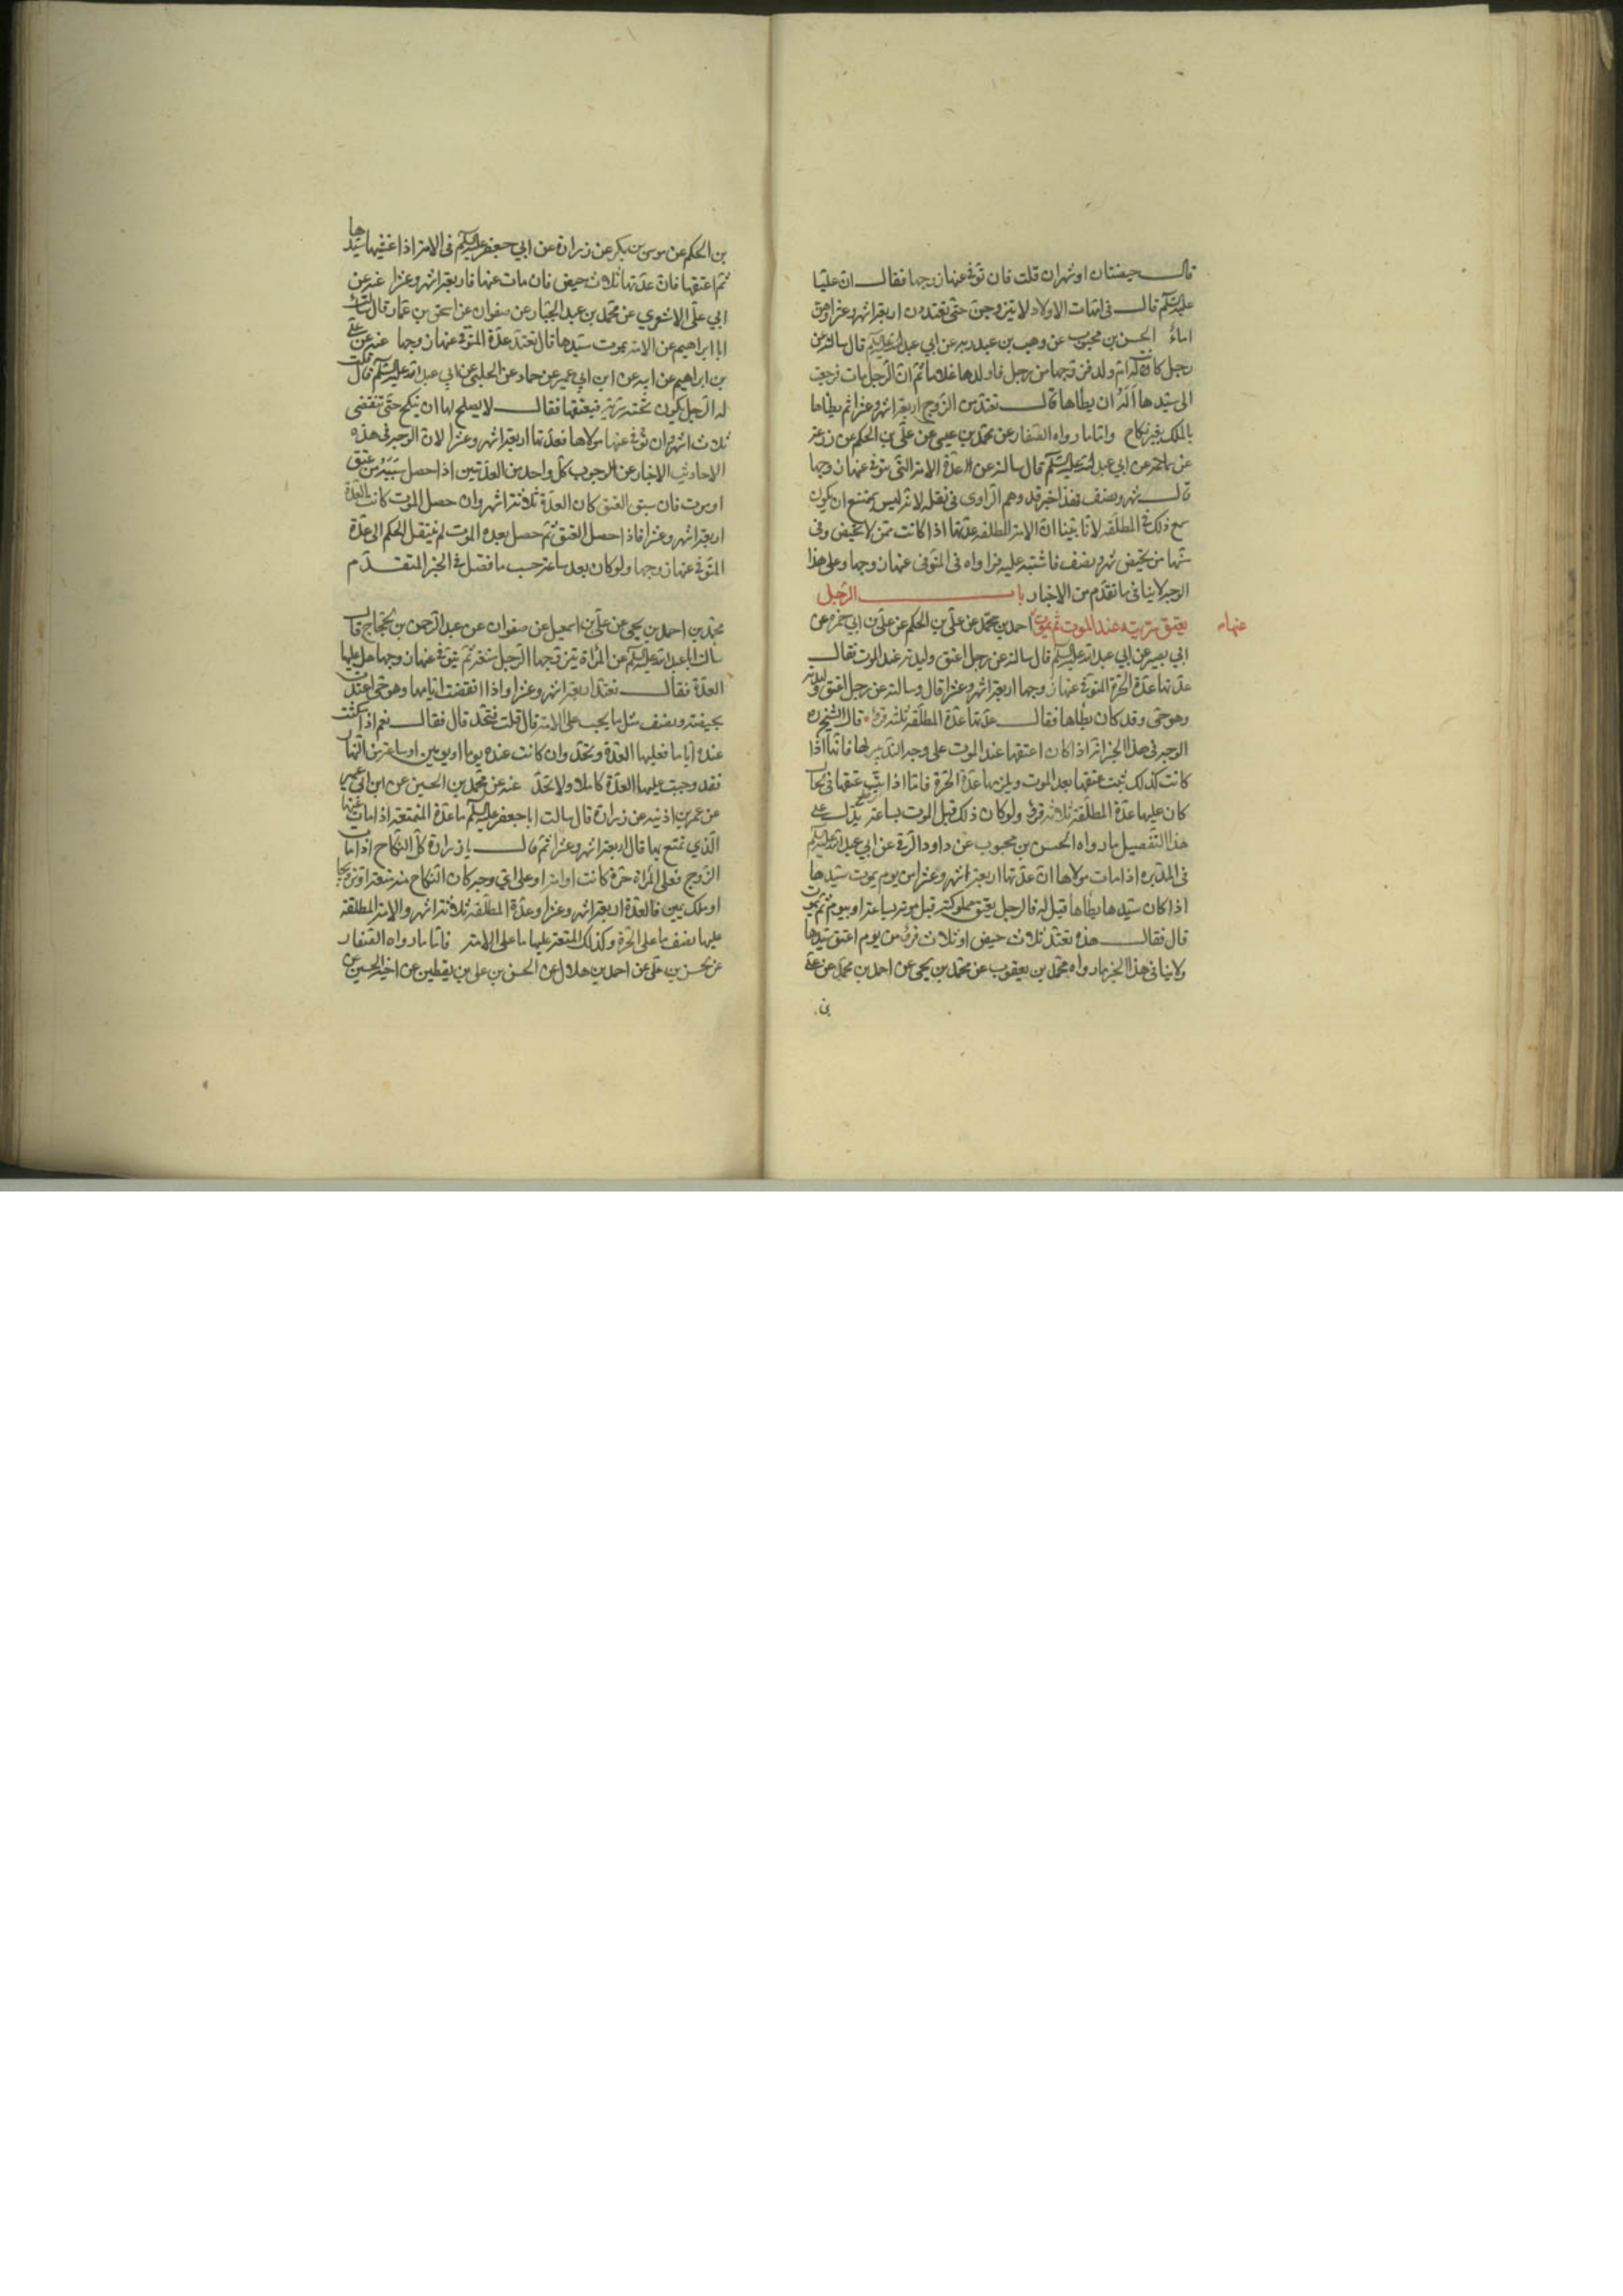 قال حيضتان او شهران قلت فان توفي عنها زوجها فقال ان عليا
عليه السلام قال في امهات الاولاد لا يتزوجن حتى يعتددن اربعة اشهر وعشرا وهن
اماء الحسن بن محبوب عن وهب بن عبد ربه عن ابي عبد الله عليه السلام قال سالته عن
رجل كانت له ام ولد فزوجها من رجل فاولدها غلاما ثم ان الرجل مات فرجعت
الى سيدها اله ان يطاها قال تعتد من الزوج اربعة اشهر وعشرا ثم يطاها
بالملك بغير نكاح واما ما رواه الصفار عن محمد بن عيسى عن علي بن الحكم عن زرعة
عن سماعة عن ابي عبد الله عليه السلام قال سالته عن العدة الامة التي يتوفى عنها زوجها
قال شهر ونصف فهذا خبر قد وهم الراوي في نقله لانه ليس يمتنع ان يكون
سمع ذلك في المطلقة لانا بينا ان الامة المطلقة عدتها اذا كانت ممن لا تحيض وفي
سنها من تحيض شهر ونصف فاشتبه عليه فرواه في المتوفى عنها زوجها وعلى هذا
الوجه لا ينافي ما تقدم من الاخبار باب الرجل
يعتق سريته عند الموت ثم يموت احمد بن محمد عن علي بن الحكم عن علي بن ابي حمزة عن
عنها
ابي بصير عن ابي عبد الله عليه السلام قال سالته عن رجل اعتق وليدته عند الموت فقال
عدتها عدة الحرة المتوفى عنها زوجها اربعة اشهر وعشرا قال وسالته عن رجل اعتق وليدته
وهو حي وقد كان يطاها فقال عدتها عدة المطلقة ثلثة قروء قال الشيخ ره
الوجه في هذا الخبر انه اذا كان اعتقها عند الموت على وجه التدبير لها فانها اذا
كانت كذلك ثبت عتقها بعد الموت ويلزمها عدة الحرة فاما اذا بت عتقها في الحال
كان عليها عدة المطلقة ثلاثة قروء ولو كان ذلك قبل الموت بساعة يدل على
هذا التفصيل ما رواه الحسن بن محبوب عن داود الرقي عن ابي عبد الله عليه السلام
في المدبرة اذا مات مولاها ان عدتها اربعة اشهر وعشرا من يوم يموت سيدها
اذا كان سيدها يطاها قيل له فالرجل يعتق مملوكته قبل موته بساعة او بيوم ثم يموت
قال فقال هذه تعتد ثلاث حيض او ثلاث قروء من يوم اعتق سيدها
ولا ينافي هذا الخبر ما رواه محمد بن يعقوب عن محمد بن يحيى عن احمد بن محمد عن علي
بن
بن الحكم عن موسى بن بكر عن زرارة عن ابي جعفر عليه السلام في الامة اذا غشيها سيدها
ثم اعتقها فان عدتها ثلاث حيض فان مات عنها فاربعة اشهر وعشرا عنه عن
ابي علي الاشعري عن محمد بن عبد الجبار عن صفوان عن اسحق بن عمار قال سالت
ابا ابراهيم عن الامة يموت سيدها قال تعتد عدة المتوفى عنها زوجها عنه عن علي
بن ابراهيم عن ابيه عن ابن ابي عمير عن حماد عن الحلبي عن ابي عبد الله عليه السلام قال قلت
له الرجل يكون تحته سرية فيعتقها فقال لا يصلح لها ان تنكح حتى تنقضي
ثلاث اشهر وان توفي عنها مولاها فعدتها اربعة اشهر وعشرا لان الوجه في هذه
الاحاديث الاخبار عن وجوب كل واحد من العدتين اذا حصل سببه من عتق
او موت فان سبق العتق كان العدة ثلاثة اشهر وان حصل الموت كانت العدة
اربعة اشهر وعشرا فاذا حصل العتق ثم حصل بعده الموت لم ينتقل الحكم الى عدة
المتوفى عنها زوجها ولو كان بعد ساعة حسب ما فصل في الخبر المتقدم
محمد بن احمد بن يحيى عن علي بن اسمعيل عن صفوان عن عبد الرحمن بن الحجاج قال
سالت ابا عبد الله عليه السلام عن المراة يتزوجها الرجل متعة ثم يتوفى عنها زوجها هل عليها
العدة فقال تعتد اربعة اشهر وعشرا واذا انقضت ايامها وهو حي اعتدت
بحيضة ونصف مثل ما يجب على الامة قال قلت فتحد قال فقال نعم اذا مكثت
عنده اياما فعليها العدة وتحد وان كانت عنده يوما او يومين او ساعة من النهار
فقد وجبت عليها العدة كاملا ولا تحد عنه عن محمد بن الحسين عن ابن ابي عمير
عن عمر بن اذينه عن زرارة قال سالت ابا جعفر عليه السلام ما عدة المتمتعة اذا مات عنها
الذي تمتع بها قال اربعة اشهر وعشرا ثم قال يا زرارة كل النكاح اذا مات
الزوج فعلى المراة حرة كانت او امة او على اي وجه كان النكاح منه متعة او تزويجا
او ملك يمين فالعدة اربعة اشهر وعشرا وعدة المطلقة ثلاثة اشهر والامة المطلقة
عليها نصف ما على الحرة وكذلك المتعة عليها ما على الامة فاما ما رواه الصفار
عن الحسن بن علي عن احمد بن هلال عن الحسن بن علي بن يقطين عن اخيه الحسين عن